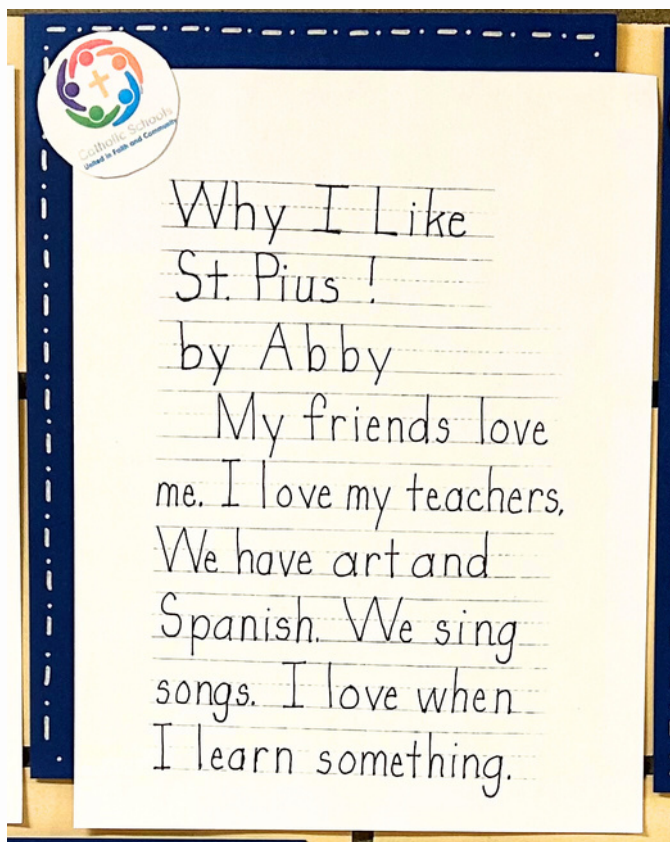 Catholic Schools
United in Faith and Community
Why I Like
St. Pius !
by Abby
My friends love
me. I love my teachers.
We have art and
Spanish. We sing
songs. I love when
I learn something.